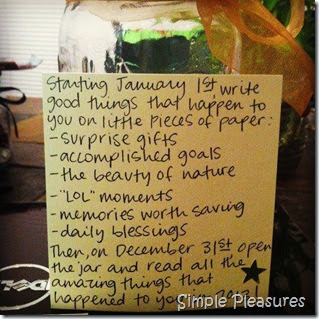 Starting January 1st write
good things that happen to
you on little pieces of paper:
-surprise gifts
-accomplished goals
-the beauty of nature
-"LOL" moments
-memories worth saving
-daily blessings
Then, on December 31st open
the jar and read all the
amazing things that
happened to you in 2013!
Simple Pleasures
DELL